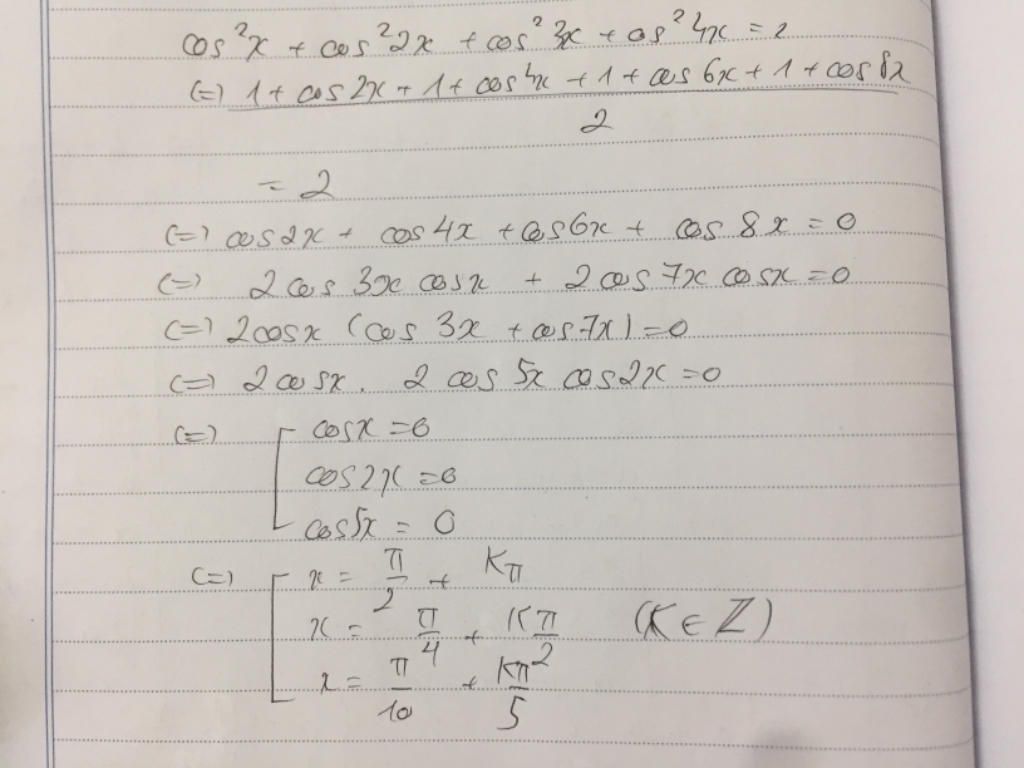 cos²x + cos²2x + cos²3x + cos²4x = 2
(=) 1 + cos 2x + 1 + cos 4x + 1 + cos 6x + 1 + cos 8x
2
= 2
(=) cos2x + cos 4x + cos6x + cos 8x = 0
(=) 2 cos 3x cosx + 2 cos 7x cosx = 0
(=) 2cosx (cos 3x + cos 7x) = 0
(=) 2 cosx. 2 cos 5x cos2x = 0
(=) [ cosx = 0
cos2x = 0
cos5x = 0
(=) [ x = π/2 + Kπ
x = π/4 + Kπ/2 (K ∈ Z)
x = π/10 + Kπ/5